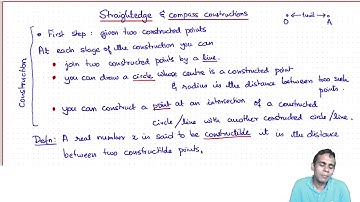 Straightedge & compass constructions
• First step : given two constructed points
O ← 1 unit → A
At each stage of the construction you can
• join two constructed points by a line.
• you can draw a circle whose centre is a constructed point
& radius is the distance between two such points.
• you can construct a point at an intersection of a constructed
circle/line with another constructed circle/line.
Construction
Defn: A real number x is said to be constructible if |x| is the distance
between two constructible points,